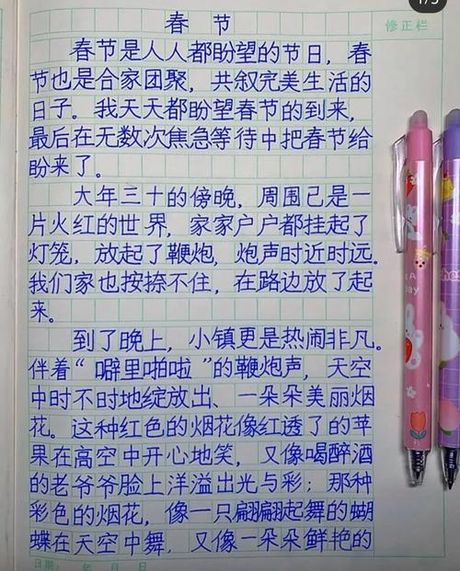 1/3
春 节
修正栏
春节是人人都盼望的节日，春
节也是合家团聚，共叙完美生活的
日子。我天天都盼望春节的到来，
最后在无数次焦急等待中把春节给
盼来了。
大年三十的傍晚，周围已是一
片火红的世界，家家户户都挂起了
灯笼，放起了鞭炮，炮声时近时远。
我们家也按捺不住，在路边放了起
来。
到了晚上，小镇更是热闹非凡。
伴着“噼里啪啦”的鞭炮声，天空
中时不时地绽放出、一朵朵美丽烟
花。这种红色的烟花像红透了的苹
果在高空中开心地笑，又像喝醉酒
的老爷爷脸上洋溢出光与彩；那种
彩色的烟花，像一只翩翩起舞的蝴
蝶在天空中舞，又像一朵朵鲜艳的
日期： 年 月 日